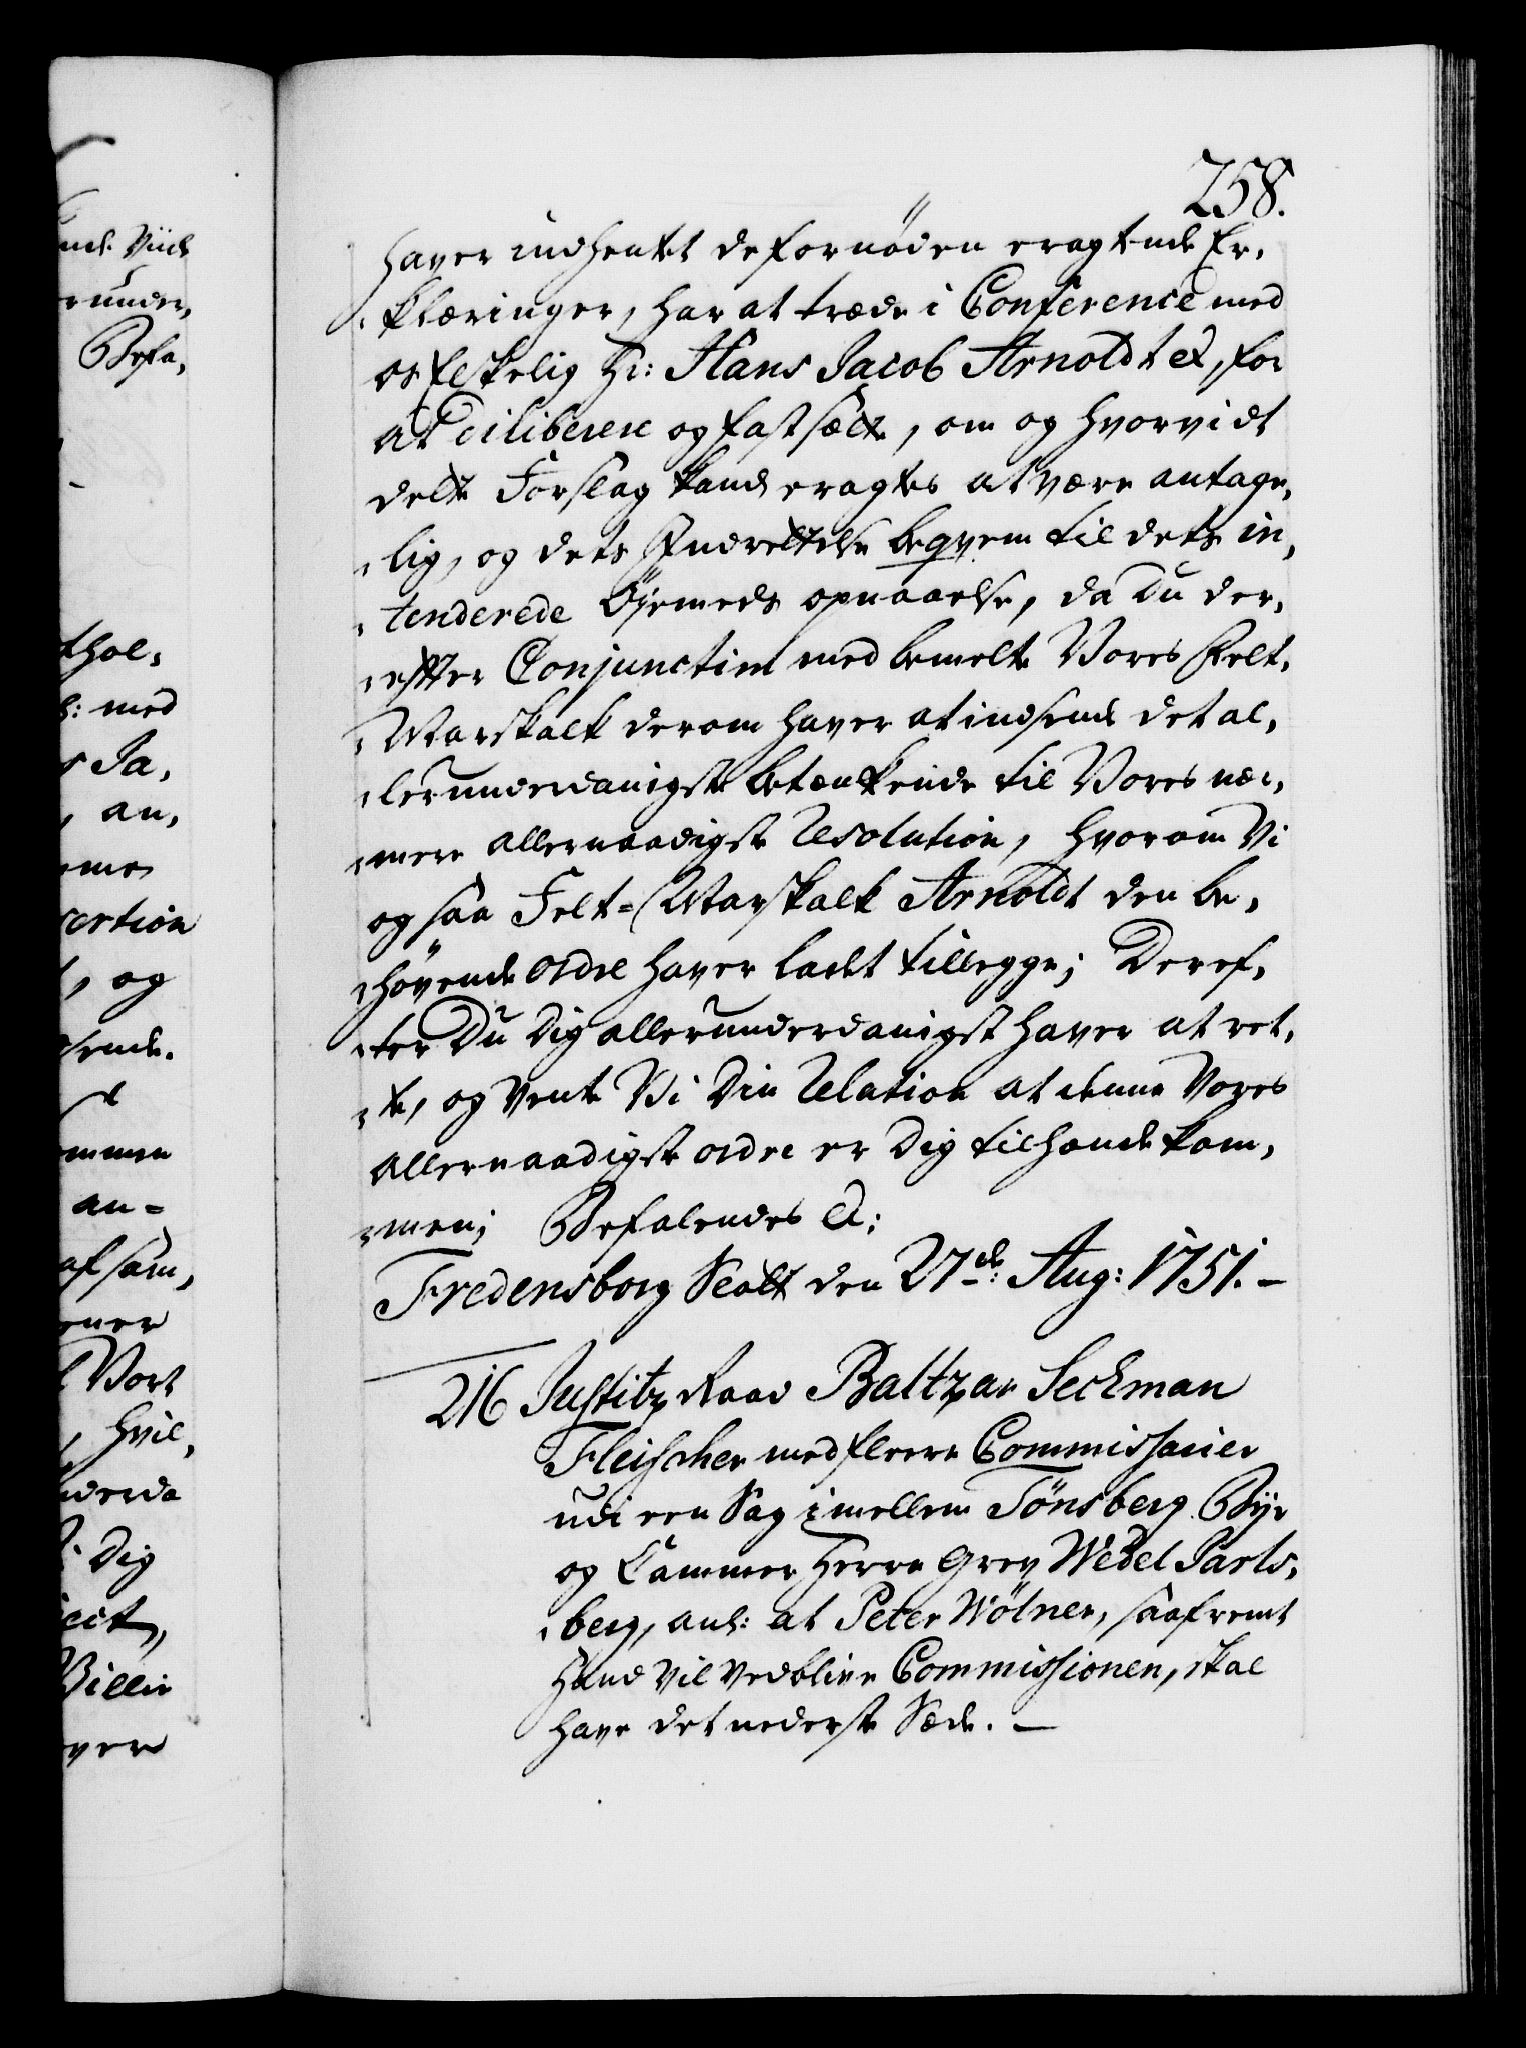 258.
haver indhentet de fornøden eragtende Er-
klæringer, har at træde i Conference med
os Elskelig Hr: Hans Jacob Arnoldt etc, for
at Deliberere og fastsætte, om og hvorvidt
dette Forslag kand eragtes at være antage-
lig, og dets Indrettelse beqvem til dets in-
tenderede Øjemeds opnaaelse, da Du der-
efter Conjunctim med bemelte Vores Felt-
Marskalk derom haver at indsende det al-
lerunderdanigste betænkende til Vores nær-
mere allernaadigste Resolution, hvorom Vi
og saa Felt-Marskalk Arnoldt den be-
høvende ordre haver ladet tillegge; Deref-
ter Du dig allerunderdanigst haver at ret-
te, og vente Vi Din Relation at denne Vores
allernaadigste ordre er dig tilhænde kom-
men; Befalendes etc:
Fredensborg Slott den 27de: Aug: 1751.-
216 Justitz Raad Baltzar Seckman
Fleischer med fleere Commissarier
udi een Sag imellem Tönsberg Bye
og Cammer Herre Grev Wedel Jarls-
berg, anl: at Peter Wölner, saafremt
hand vil vedblive Commissionen, skal
have det nederste Sæde. -
nde Viide
runder,
Befa,
thol,
med
Ja,
an,
ertion
og
sende.
ommen
an=
af sam,
ener
Vort
hvil,
nderda
Dig
ect,
Billie
ver